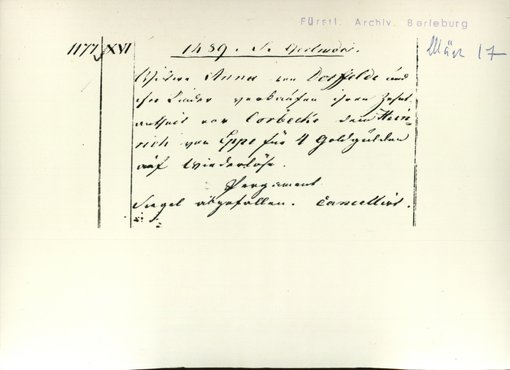 Fürstl. Archiv. Berleburg
1177 XVI 1439. S.
März 17
Witwe Anna von und
ihre Kinder verkaufen ihren Zehnt
antheil vor Corbecke dem Hein-
rich von Eppe für 4 Goldgulden
auf Wiederlöse.
Pergament
Siegel abgefallen. Cancellirt.